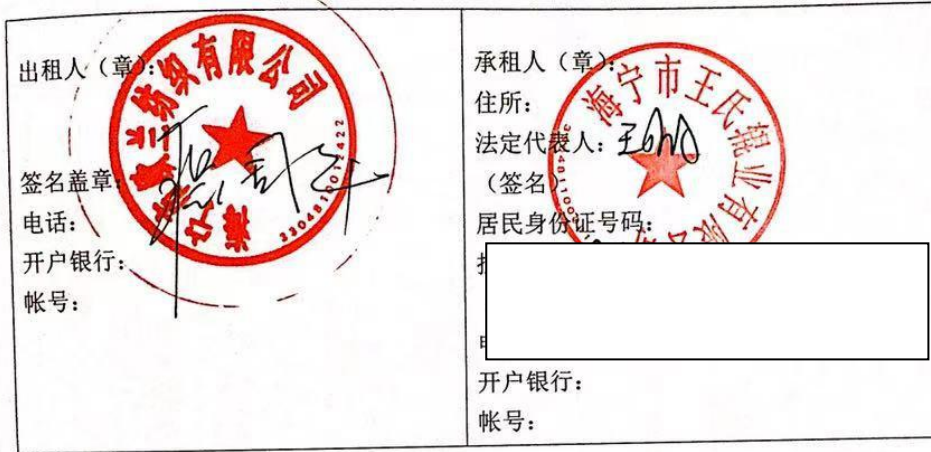 出租人（章）：
签名盖章：
电话：
开户银行：
帐号：
纺织有限公司
3304810012422
承租人（章）：
住所：
法定代表人：
（签名）
居民身份证号码：
开户银行：
帐号：
海宁市王氏辊业有限